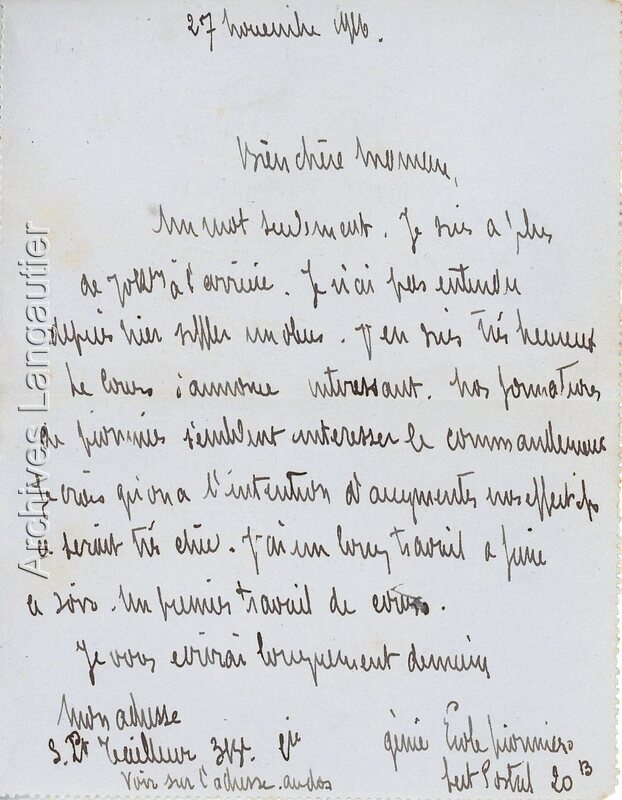 27 novembre 1916.
Bien chère Maman,
Un mot seulement. Je suis a plus
de 70 kms à l'arrière. Je n'ai pas entendu
depuis hier siffler un obus. J'en suis très heureux
Le cours s'annonce interessant. Nos formations
de pionniers semblent interesser le commandement
Je crois qu'on a l'intention d'augmenter nos effectifs
ce serait très chic. J'ai un long travail a faire
ce soir. Un premier travail de cours.
Je vous ecrirai longuement demain
Mon adresse
S. Lt Teilleur génie Ecole pionniers
Voir sur l'adresse au dos Sect Postal 20 B
Archives Langautier